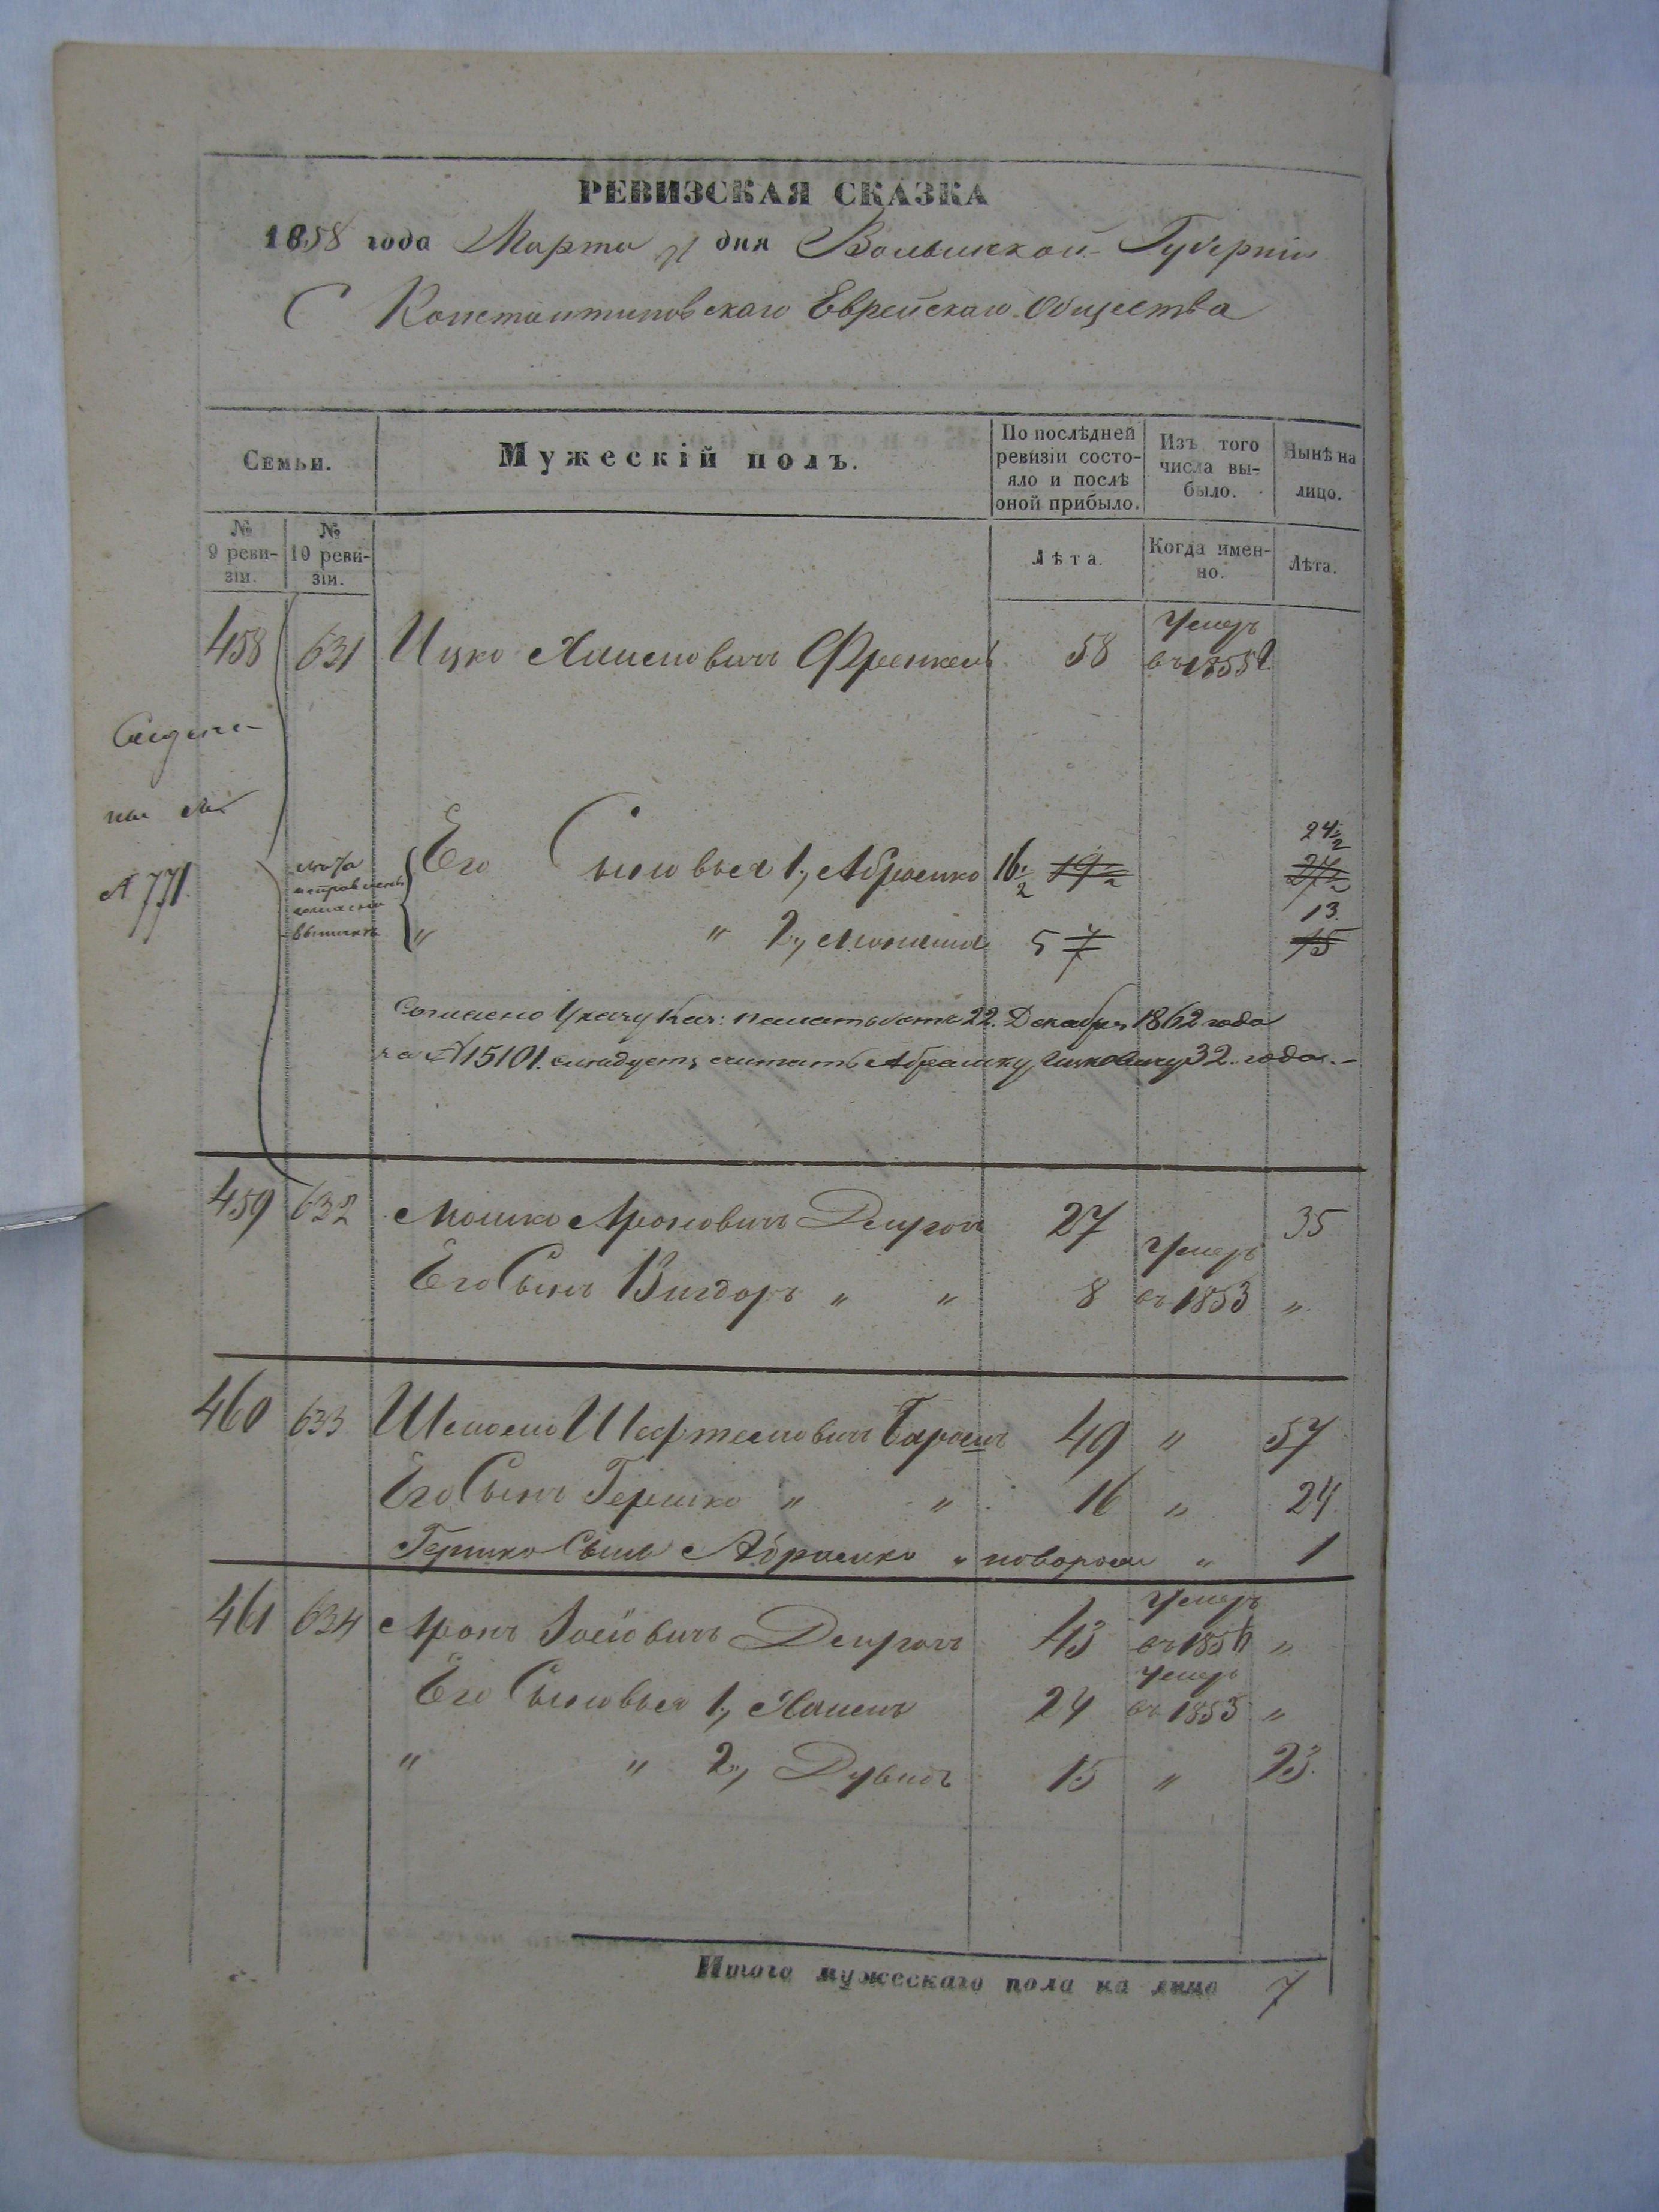 РЕВИЗСКАЯ СКАЗКА
1858 года Марта дня Волынской Губерніи
С Константиновскаго Еврейскаго Общества
Семьи.
Мужескій полъ.
По послѣдней ревизіи состояло и послѣ оной прибыло.
Изъ того числа выбыло.
Нынѣ на лицо.
№ 9 ревизіи.
№ 10 ревизіи.
Лѣта.
Когда именно.
Лѣта.
458 631 Ицко Хаимовичъ Френкель 58 Умеръ въ 1855
24½
Его Сыновья 1, Абрамко 16½ 19½ 27½
13
" " 2, 5 7 15
№ 771
лѣта исправлены
Согласно Указу Каз: палаты отъ 22. Декабря 1862 года
за №15101. слѣдуетъ считать Абрамку Ицковичу 32. года.-
459 632 Мошко Ароновичъ 27 35
Его Сынъ Вигдоръ " " 8 Умеръ въ 1853 "
460 633 49 " 57
Его Сынъ Гершко " " 16 " 24
Гершко Сынъ Абрамко " новорож " 1
461 634 Аронъ 43 Умеръ "
Его Сыновья 1, Хаимъ 24 Умеръ въ 1853 "
" " 2, Дувидъ 15 " 23.
Итого мужескаго пола на лицо 7